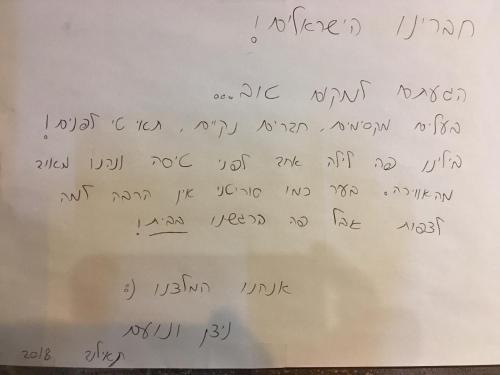 חברינו הישראלים!
הגעתם למקום טוב...
בעלים מקסימים, חברים נקיים, תאי טי לפנים!
בילינו פה לילה אחד לפני טיסה ונהנו מאוד
מהאווירה. בעיר כמו סוריטני אין הרבה למה
לצפות אבל פה הרגשנו בבית!
אנחנו המלצנו (:
ניצן ונועם
תאילנד 2018